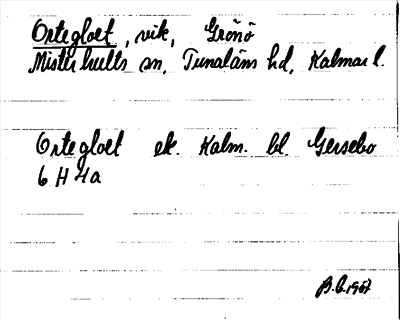 Ortegloet, vik, Grönö
Misterhults sn, Tunaläns hd, Kalmar l.
Ortegloet ek. Kalm. bl. Gersebo
6 H 4a
B.C. 1967